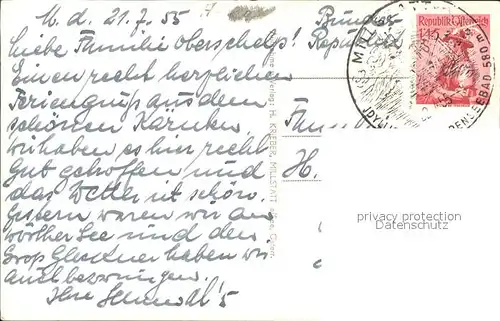 M. d. 21.7.55
Liebe Familie Oberschelp!
Einen recht herzlichen
Feriengruß aus dem
schönen Kärnten.
Wir haben es hier recht
gut getroffen und
das Wetter ist schön.
Gestern waren wir am
Wörther See und den
Gross Glockner haben wir
auch bezwungen.
Ihre
Bundes
Republik
Familie
H.
Republik Österreich
Verlag: H. KRIEBER, MILLSTATT
privacy protection
Datenschutz